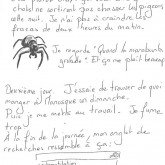 chats ne sortiront pas chasser les pigeons
cette nuit. Je n'ai pas à craindre les
fracas de deux heures du matin.
Je regarde "Quand le marabout
gronde". Et ça me plaît beaucoup.
Deuxième jour. J'essaie de trouver de quoi
manger à Manosque un dimanche.
Puis je me mets au travail. Je fume
trop!
À la fin de la journée, mon onglet de
recherches ressemble à ça: